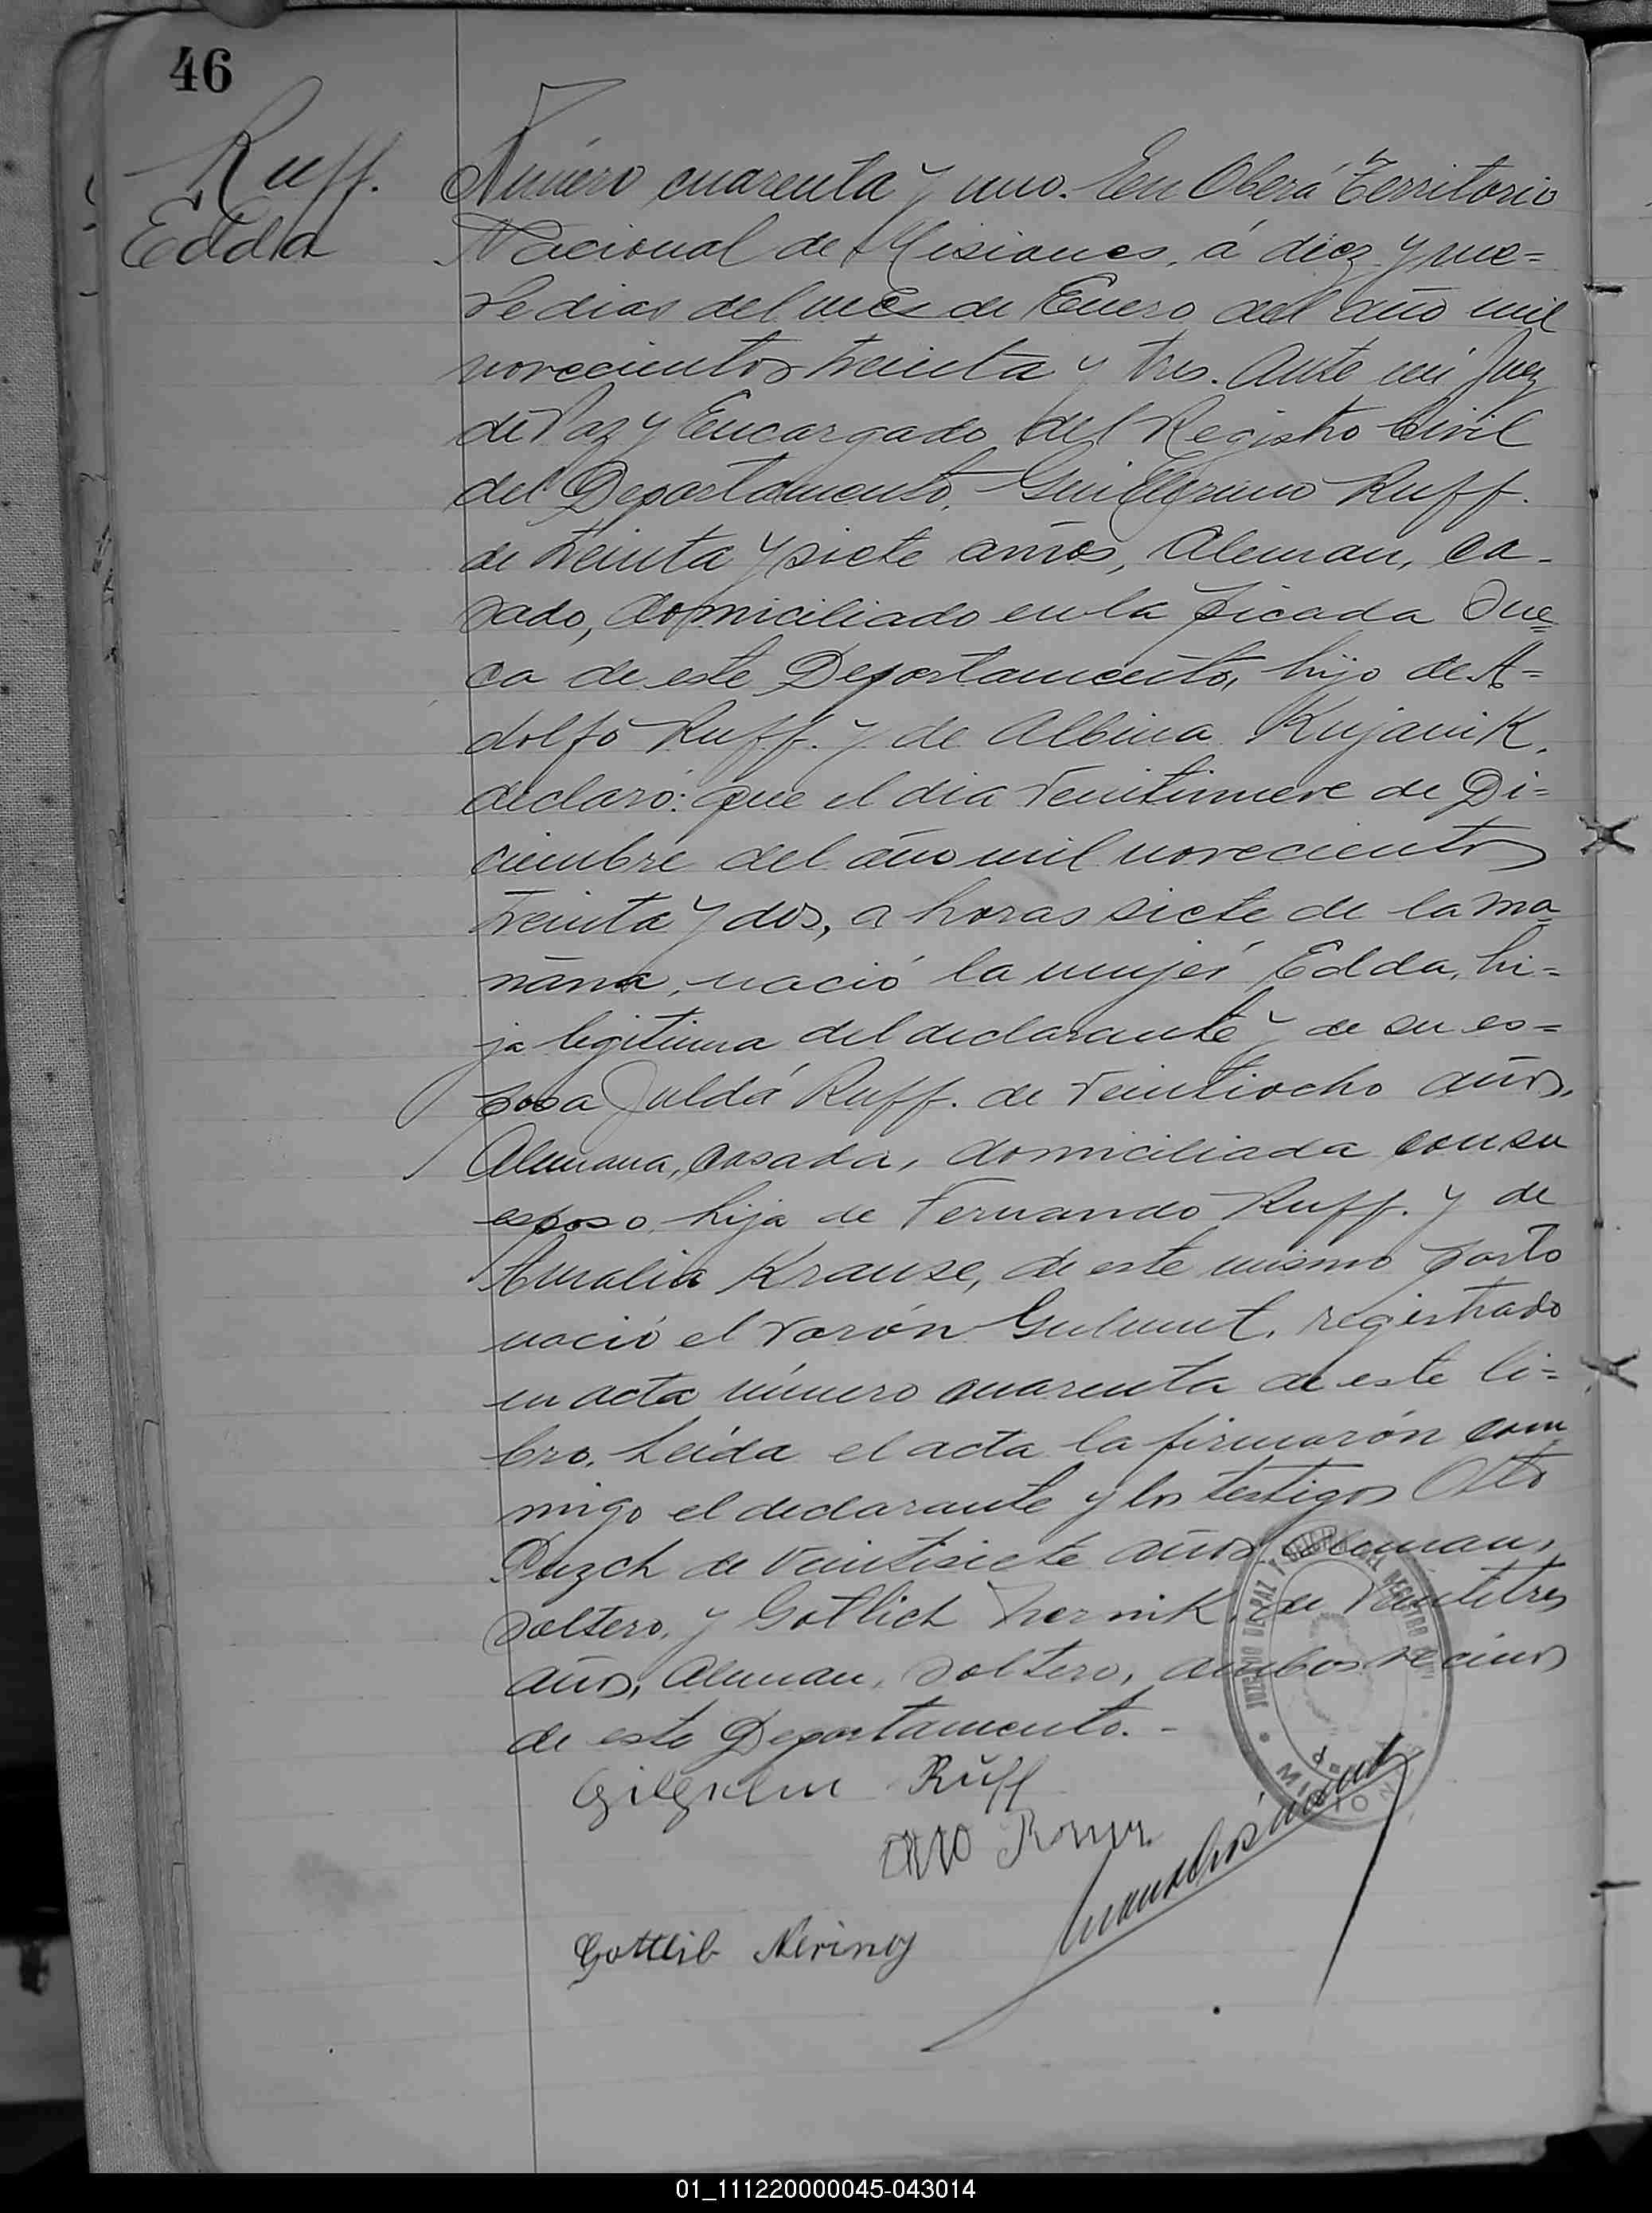 46
Ruff.
Edda
Número cuarenta y uno. En Oberá Territorio
Nacional de Misiones, á diez y nue=
ve dias del mes de Enero del año mil
novecientos treinta y tres. Ante mi Juez
de Paz y Encargado del Registro Civil
del Departamento, Guillermo Ruff.
de treinta y siete años, Aleman, ca-
sado, domiciliado en la picada Sue=
ca de este Departamento, hijo de A=
dolfo Ruff. y de Albina Kujanik,
declaró: que el dia veintinueve de Di=
ciembre del año mil novecientos
treinta y dos, a horas siete de la ma=
ñana, nació la mujér Edda, hi=
ja legitima del declarante y de su es=
posa Juldá Ruff. de veintiocho años,
Alemana, casada, domiciliada con su
esposo, hija de Fernando Ruff. y de
Amalia Krause, de este mismo parto
nació el varón Gulmut, registrado
en acta número cuarenta de este li=
bro. Leida el acta la firmarón con
migo el declarante y los testigos Otto
de veintisiete años, Aleman,
soltero, y Gotlich de veintitres
años, Aleman, soltero, ambos vecinos
de este Departamento. -
Ruff
Otto
Gottlib Nering
JUZGADO DE PAZ Y DEL REGISTRO CIVIL
MISIONES
01_111220000045-043014